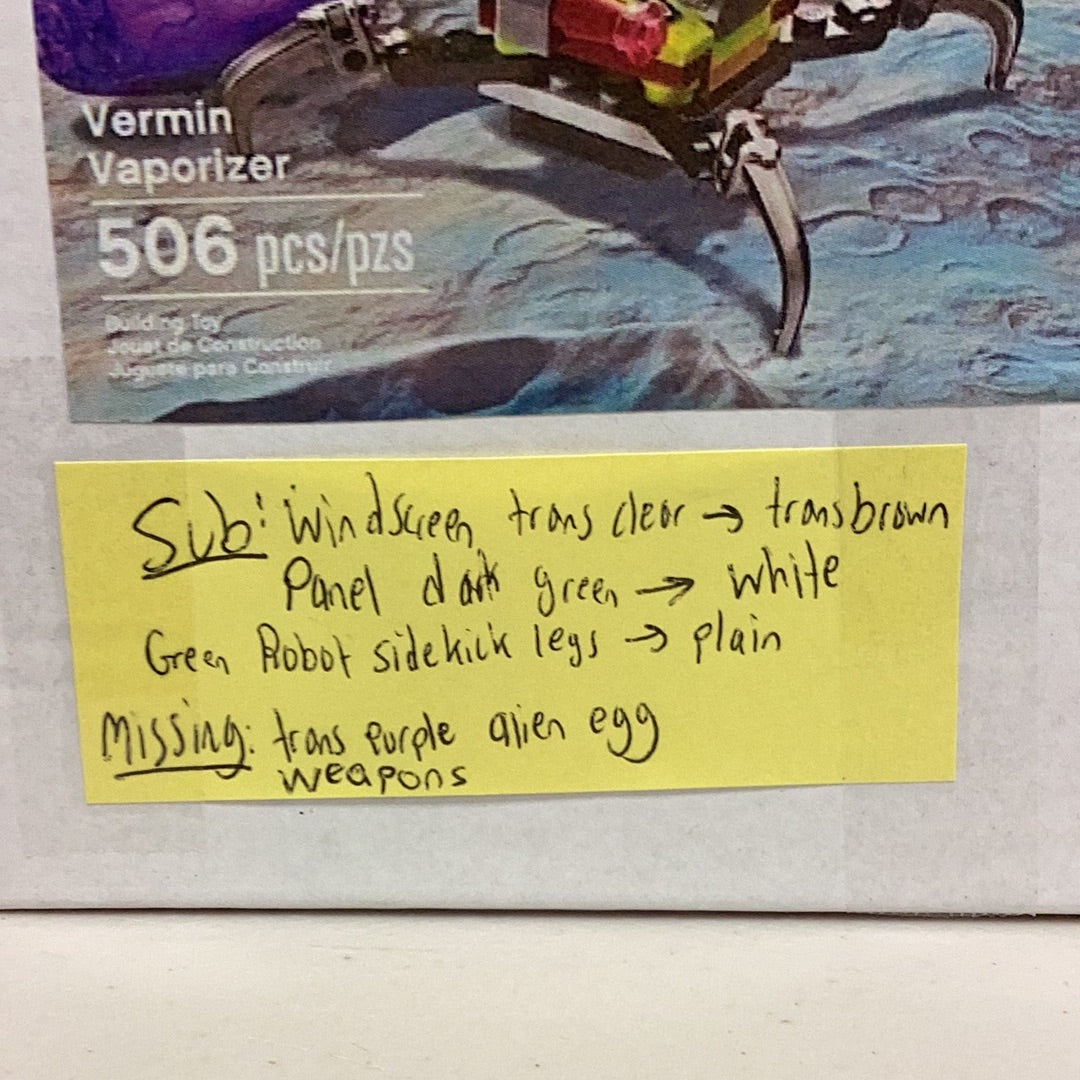 Vermin
Vaporizer
506 pcs/pzs
Building Toy
Jouet de Construction
Juguete para Construir
Sub: Windscreen trans clear → trans brown
Panel dark green → white
Green Robot sidekick legs → plain
Missing: trans purple alien egg
weapons